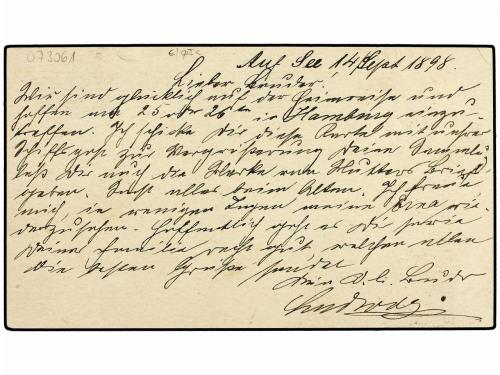 073061
Auf See 14 Sept 1898.
Lieber Bruder.
Wir sind glücklich auf der Heimreise und
hoffen am 25 oder 26ten in Hamburg einzu-
treffen. Ich schicke Dir diese Karte mit unsrer
Schiffspost zur Vergrößerung Deiner Samml.
laß Dir auch die Marke von Mutters Brief
geben. Sonst alles beim Alten. Ich freue
mich, in wenigen Tagen meine wie-
derzusehen. Hoffentlich geht es Dir sowie
Deiner Familie recht gut welchen allen
die besten Grüße sendet
Dein Bruder
Ludwig.